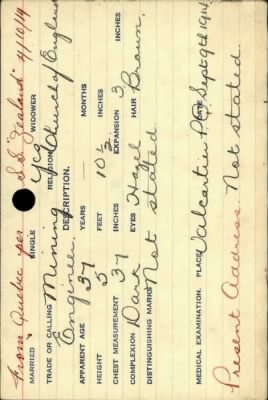 From Quebec per S.S. "Zealand" 4/10/14
MARRIED SINGLE yes WIDOWER
TRADE OR CALLING Mining Engineer RELIGION Church of England
DESCRIPTION.
APPARENT AGE 37 YEARS — MONTHS
HEIGHT 5 FEET 10½ INCHES
CHEST MEASUREMENT 37 INCHES EXPANSION 3 INCHES
COMPLEXION Dark EYES Hazel HAIR Brown.
DISTINGUISHING MARKS Not stated
MEDICAL EXAMINATION. PLACE Valcartier P.Q. DATE Sept 9th 1914.
Present Address. Not stated.